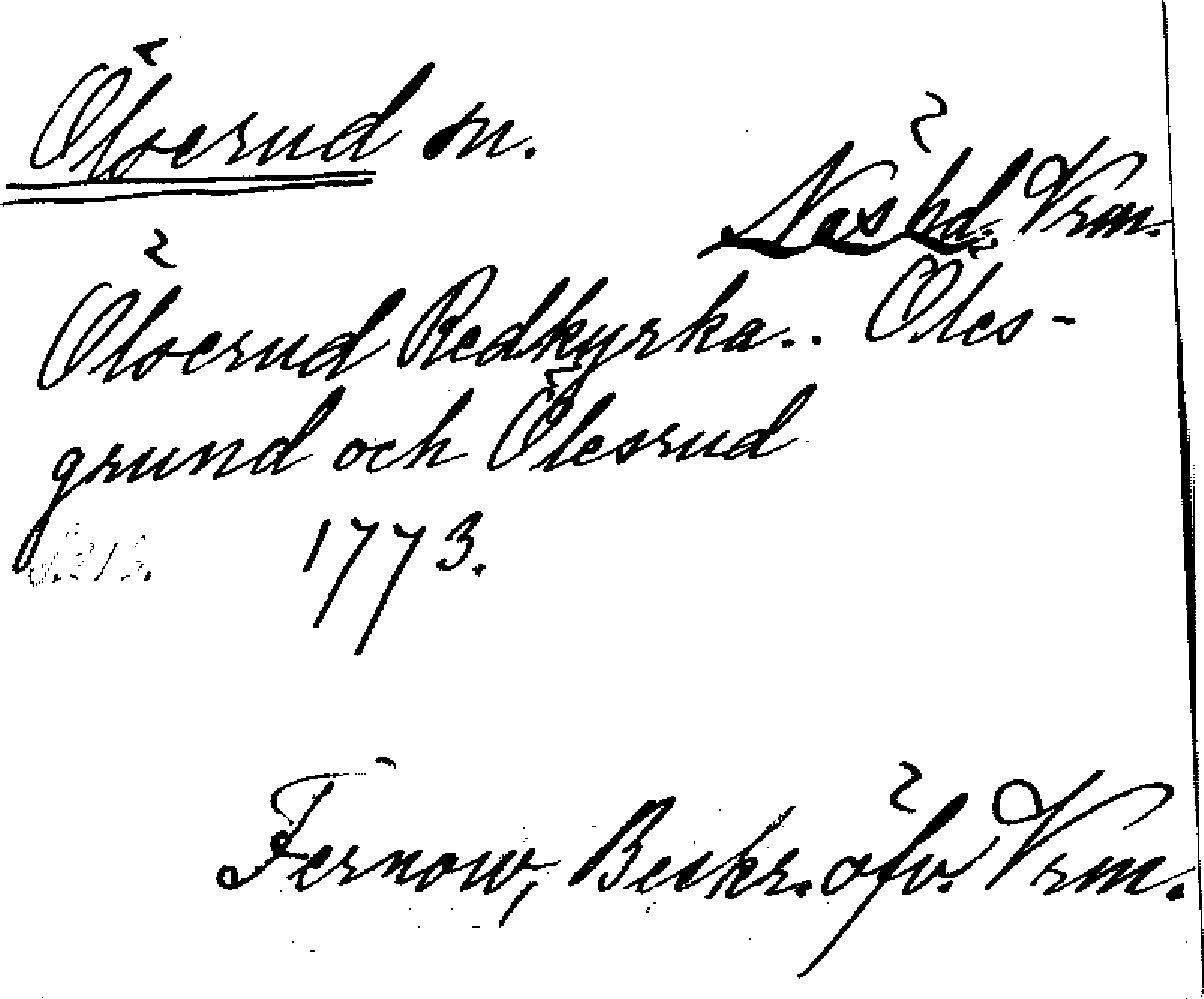 Ölserud sn.
Näs hd. Vrm.
Ölserud Redkyrka.. Öles-
grund och Ölesrud
1773.
Fernow, Beskr. öfv. Vrm.